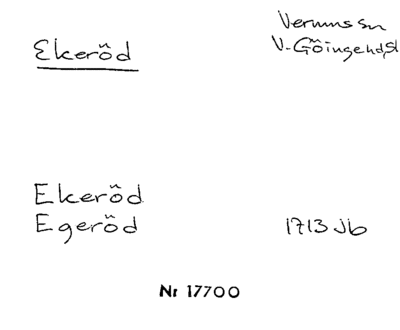 Ekeröd
Verums sn
V-Göinge hd, sl
Ekeröd
Egeröd 1713 Jb
Nr 17700